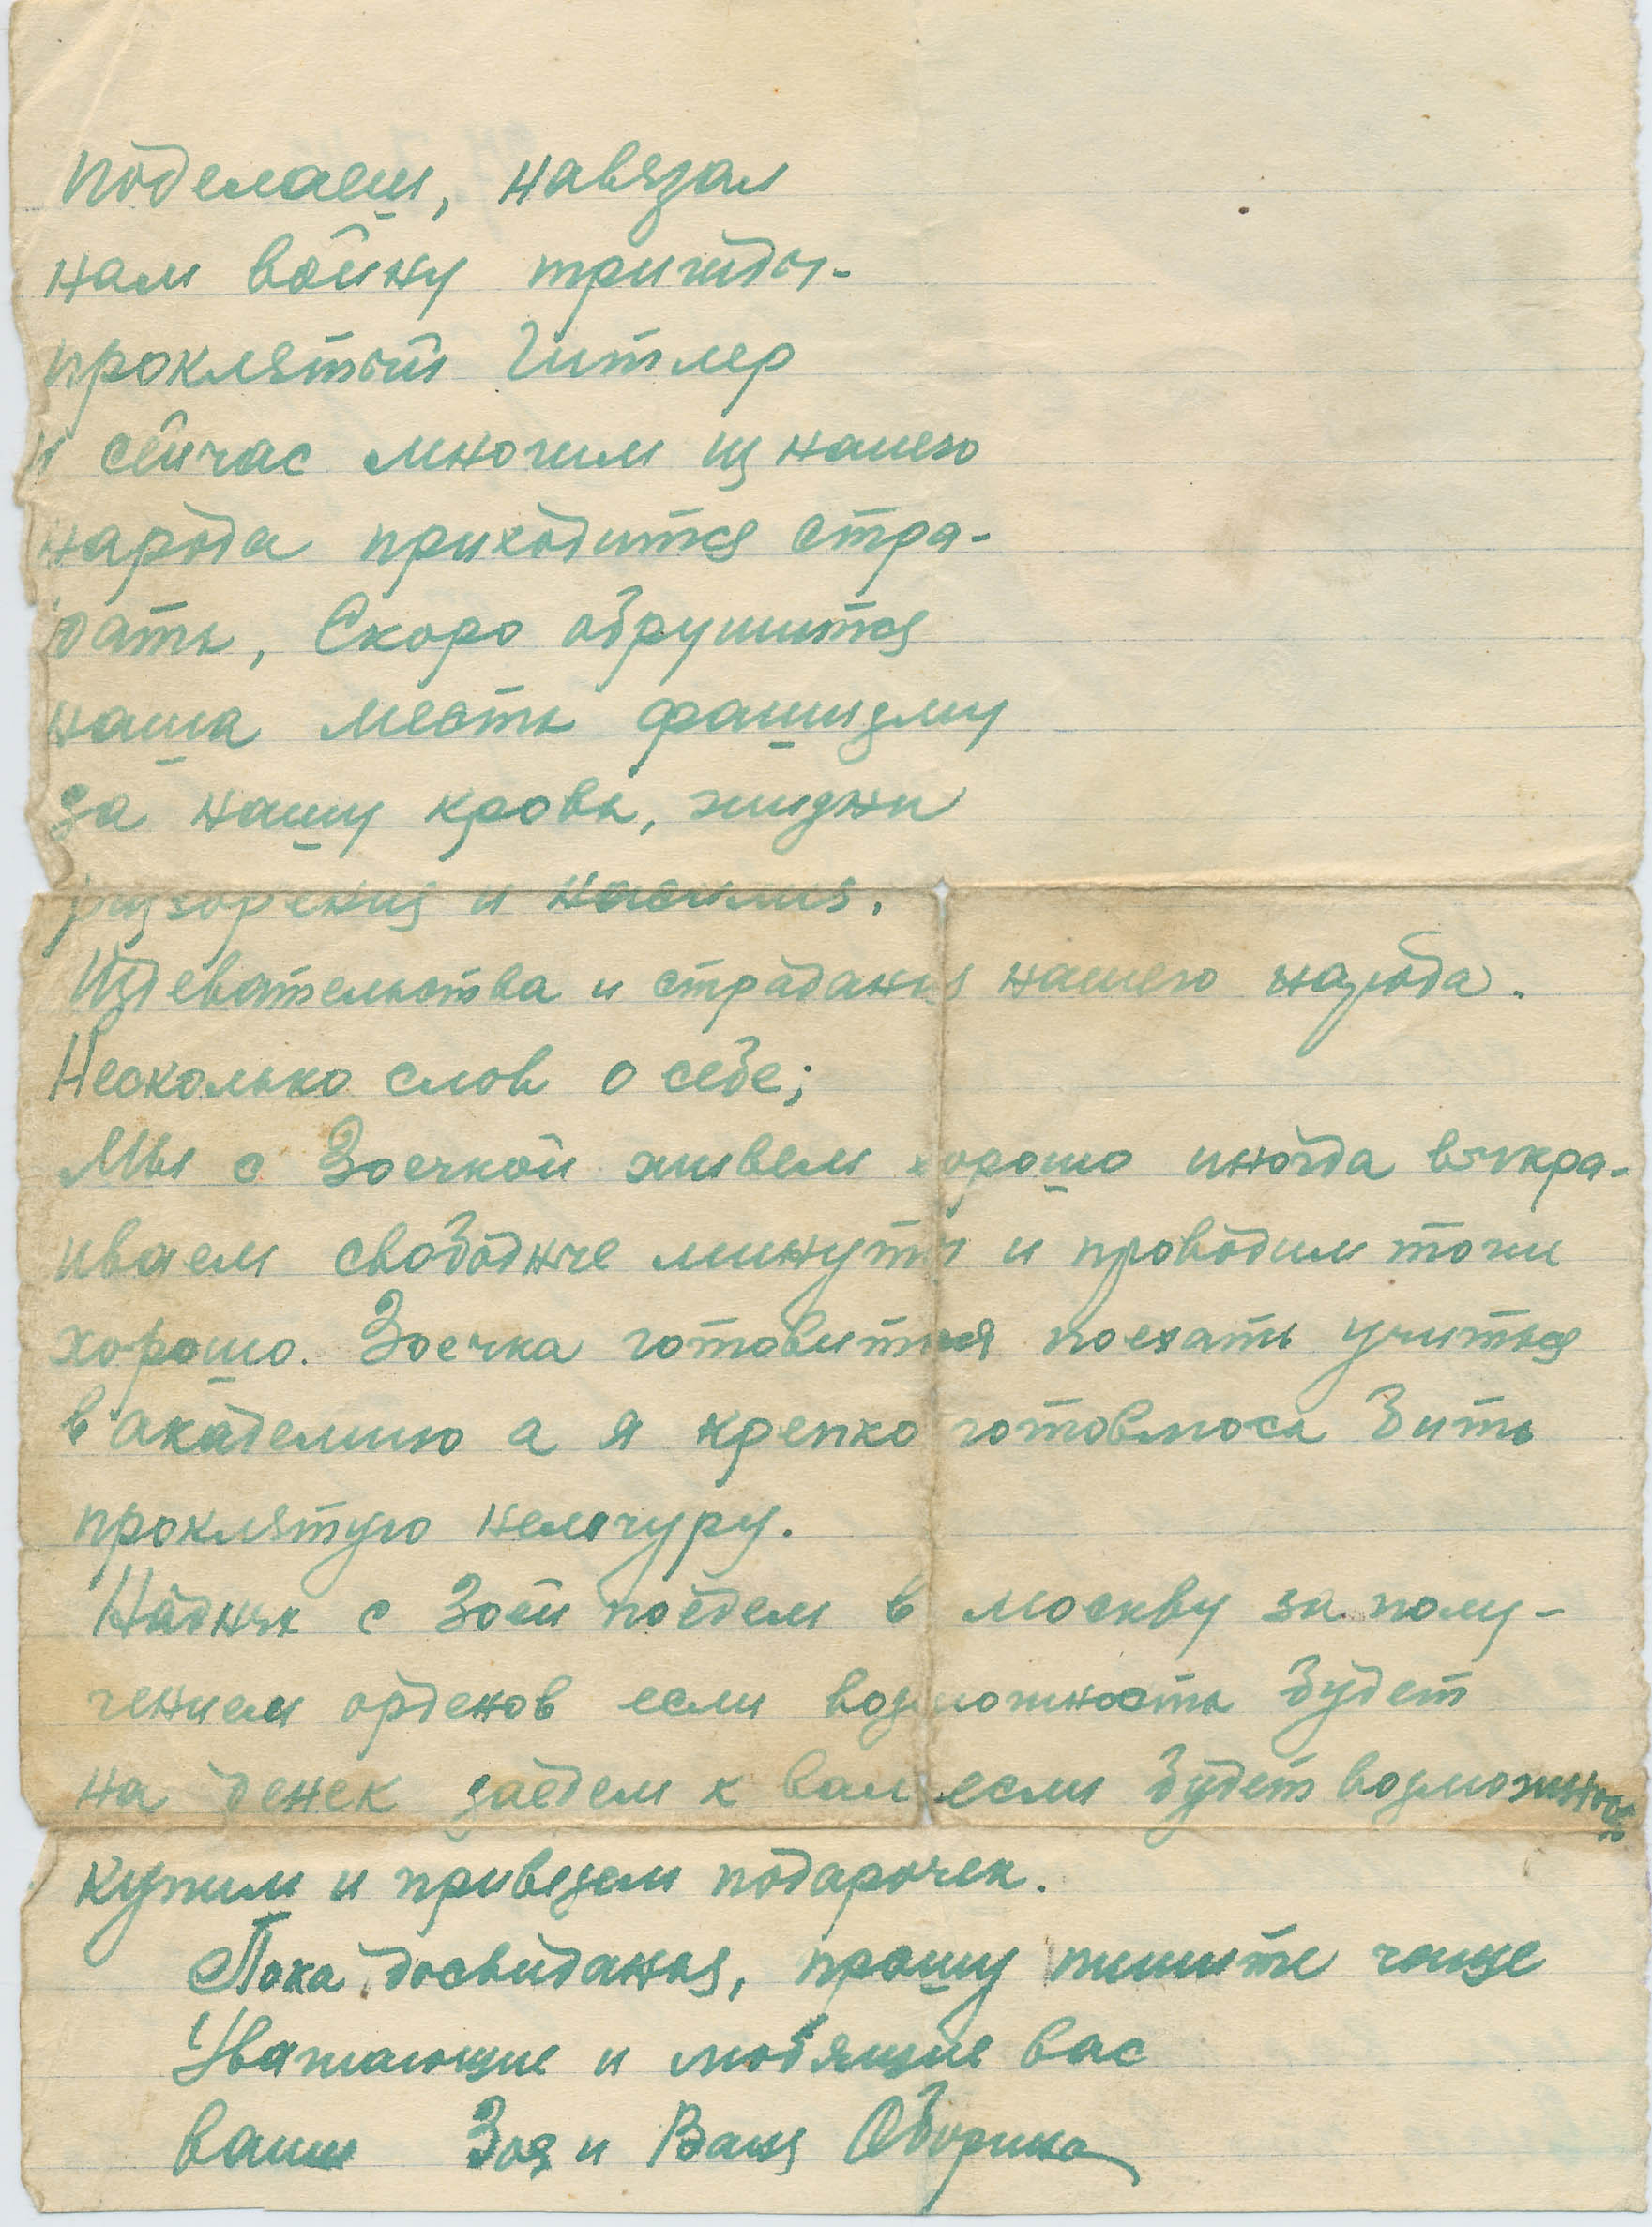 поделаеш, навязал
нам войну трижды-
проклятый Гитлер
и сейчас многим из нашего
народа приходится стра-
дать, Скоро обрушится
наша месть фашизму
за нашу кровь, жизни
разорения и насилия.
Издевательства и страдания нашего народа.
Несколько слов о себе;
Мы с Зоечкой живем хорошо иногда выкра-
иваем свободные минуты и проводим точи
хорошо. Зоечка готовится поехать учиться
в академию а я крепко готовлюсь бить
проклятую немчуру.
Наднях с Зоей поедем в москву за полу-
чением орденов если возможность будет
на денек заедем к вам если будет возможность
купим и привезем подарочек.
Пока досвиданья, прошу пишите чаще
Уважающие и любящие вас
ваши Зоя и Ваня Оборина